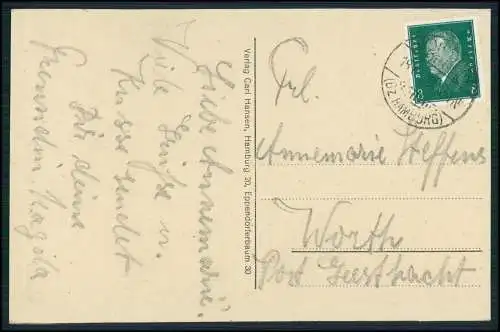 Liebe Annemarie.
Viele Grüße u.
Küsse sendet
Dir deine
Freundin Magda
Verlag Carl Hansen, Hamburg 30, Eppendorferbaum 30
Frl.
Annemarie Steffens
Worth
Post Geesthacht
(BZ. HAMBURG)
8 8